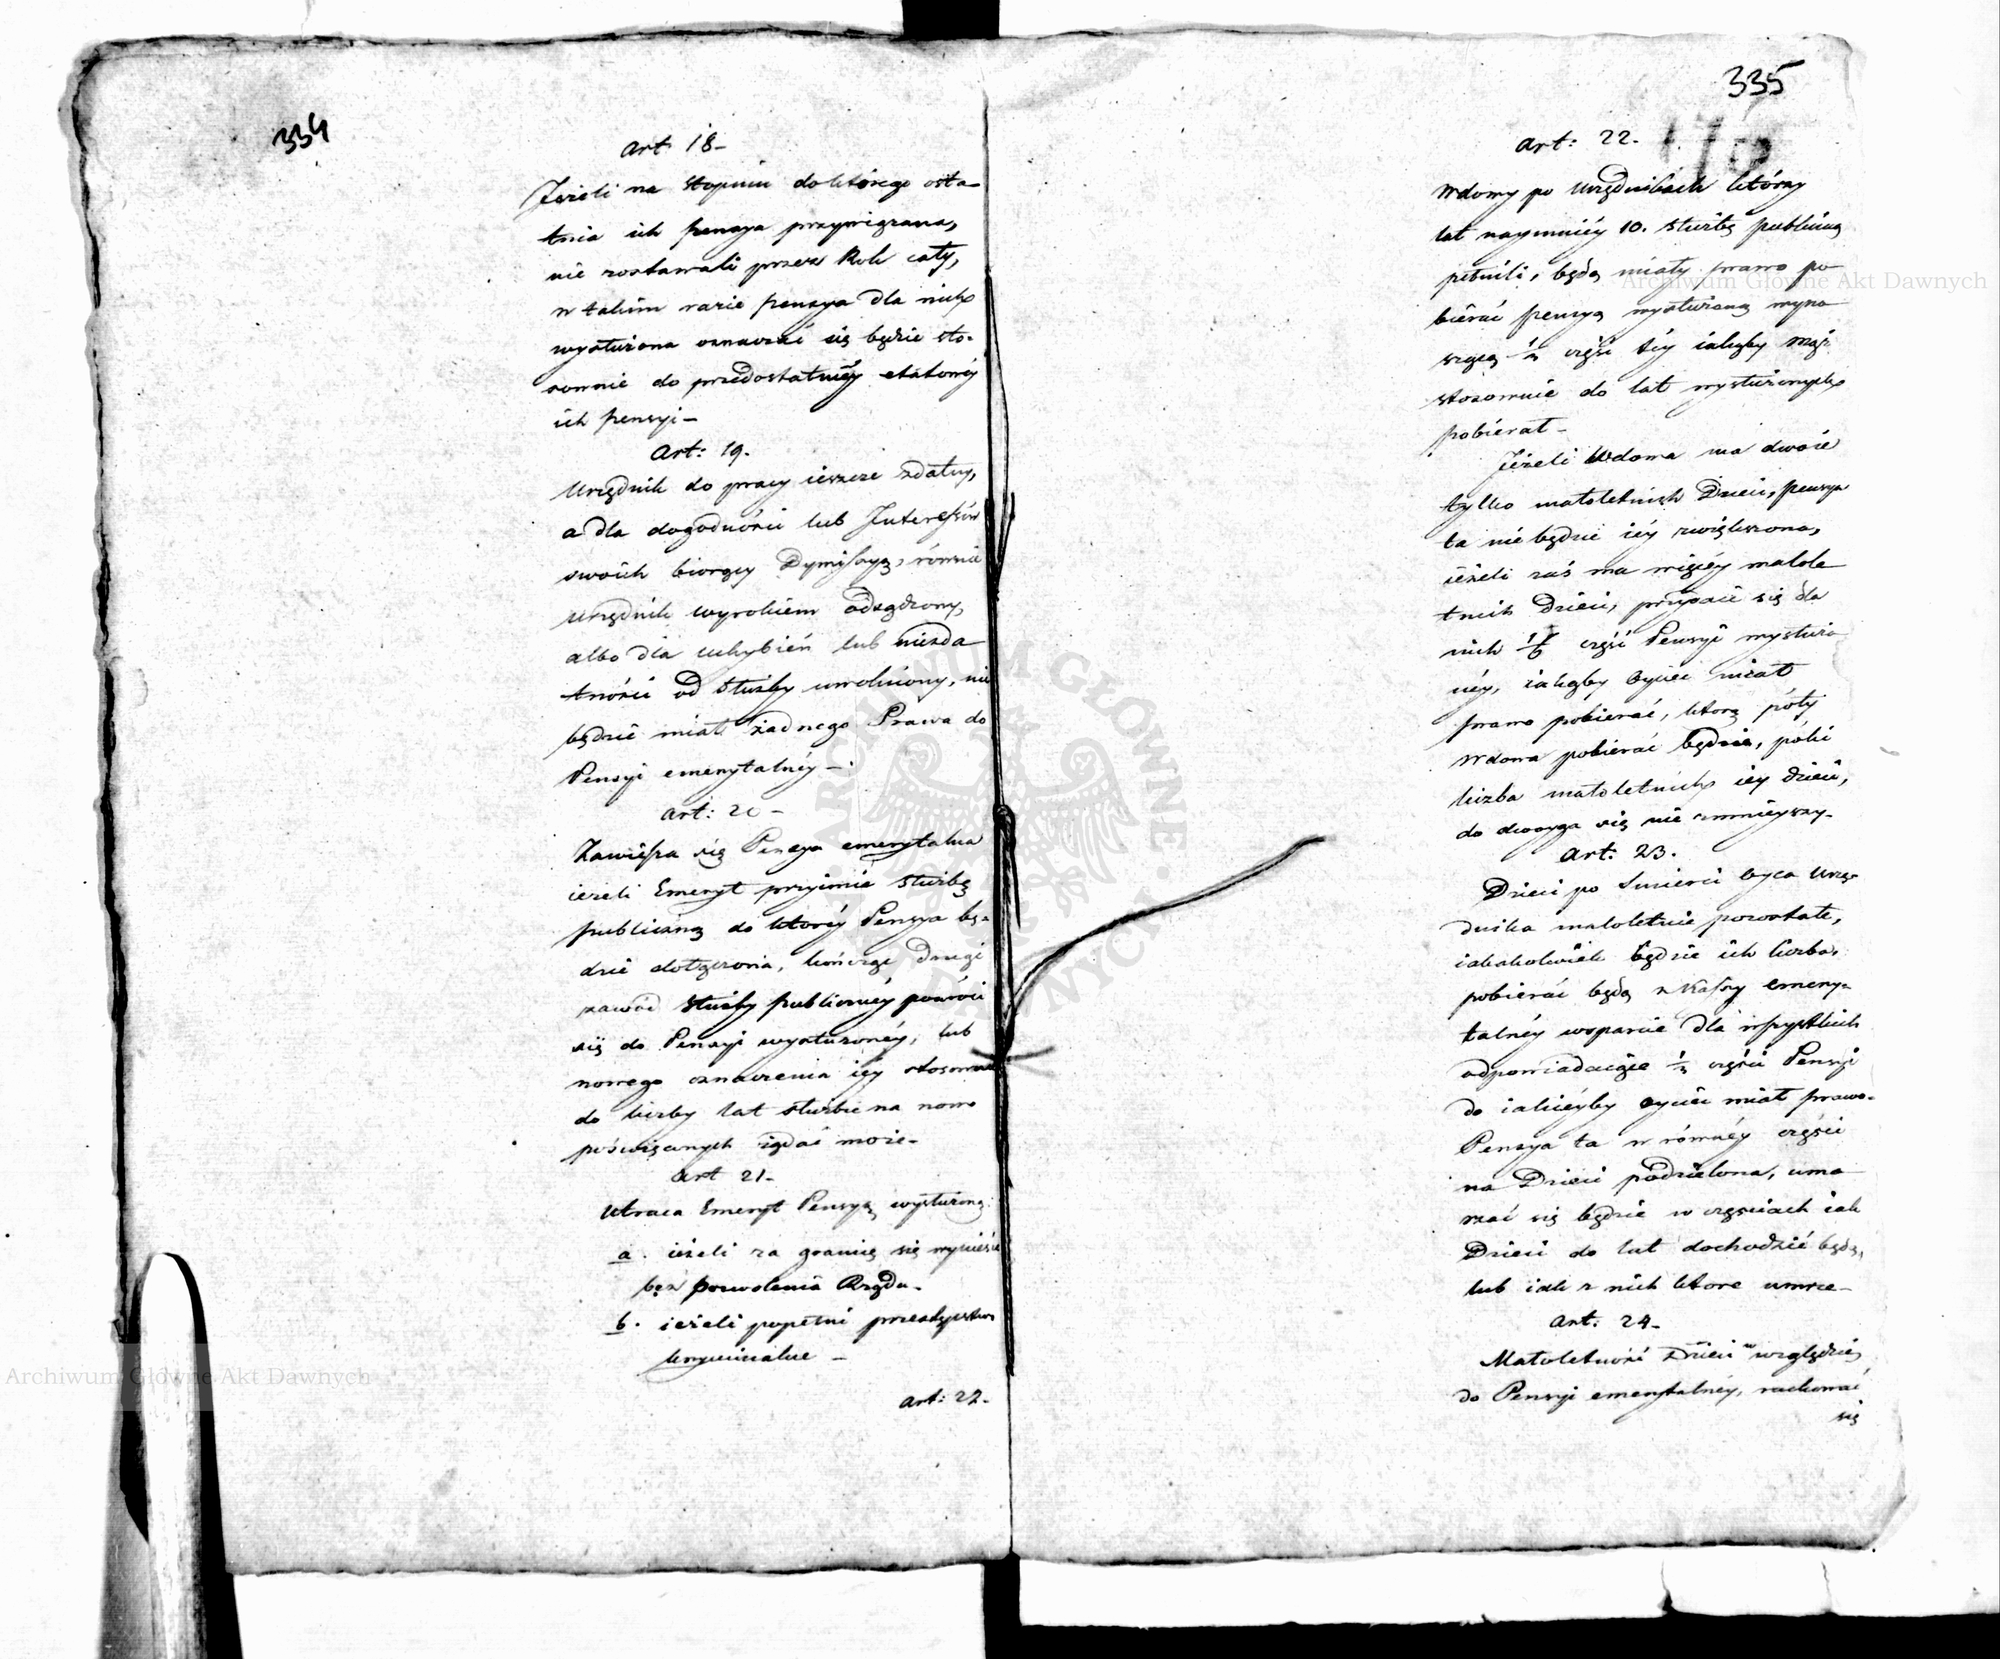 334
Art 18-
Jeżeli na Stopniu do którego osta-
tnia ich pensya przywiązana,
nie zostawali przez Rok cały,
w takim razie pensya dla nich
wysłużona oznaczać się będzie sto-
sownie do przedostatniéy etatowéy
ich pensyi-
Art: 19.
Urzędnik do pracy ieszcze zdatny,
a dla dogodności lub Interessów
swoich biorący Dymissyą, równie
urzędnik wyrokiem odsądzony,
albo dla uchybień lub niezda
tności od Służby uwolniony, nie
będzie miał żadnego Prawa do
Pensyi emerytalnéy-.
Art: 20-
Zawiesza się Pensya emerytalna
ieżeli Emeryt przyimie Służbę
publiczną do któréy Pensya bę-
dzie dołączona, kończąc Drugi
zawód Służby publicznéy powróci
się do Pensyi wysłużonéy, lub
nowego oznaczenia iéy stosownie
do liczby lat służbie na nowo
poświęconych żądać może-
Art 21-
Utraca Emeryt Pensyą wysłużoną:
a. ieżeli za granicę się wyniesie
bez pozwolenia Rządu-
b. ieżeli popełni przestępstwo
kryminalne -
art: 22-
335
Art: 22-
Wdowy po Urzędnikach którzy
lat naymniéy 10. Służbę publiczną
pełnili, będą miały prawo po-
bierać pensyą wysłużoną wyno
szącą ½ część téy iakąby mąż
stosownie do lat wysłużonych
pobierał-
Jeżeli Wdowa ma dwoie
tylko małoletnich Dzieci, pensya
ta nie będzie iéy zwiększona,
ieżeli zaś ma więcéy małole
tnich Dzieci, przydaie się dla
nich części Pensyi wysłużo
néy, iakąby Oyciec miał
prawo pobierać, którą póty
Wdowa pobierać będzie, póki
liczba małoletnich iéy dzieci,
do dwoyga się nie zmnieyszy-
Art: 23.
Dzieci po śmierci Oyca Urzę-
dnika małoletnie pozostałe,
iakakolwiek będzie ich liczba,
pobierać będą z Kassy emery-
talnéy wsparcie dla wszystkich
odpowiadaiące ½ części Pensyi
do iakiéyby Oyciec miał prawo-
Pensya ta w równéy części
na Dzieci podzielona, uma
rzać się będzie w częściach iak
Dzieci do lat dochodzić będą,
lub iak z nich które umrze-
Art: 24-
Małoletność Dzieci w względzie
do Pensyi emerytalnéy, rachować
się
Archiwum Główne Akt Dawnych
Archiwum Główne Akt Dawnych
ARCHIWUM GŁÓWNE AKT DAWNYCH